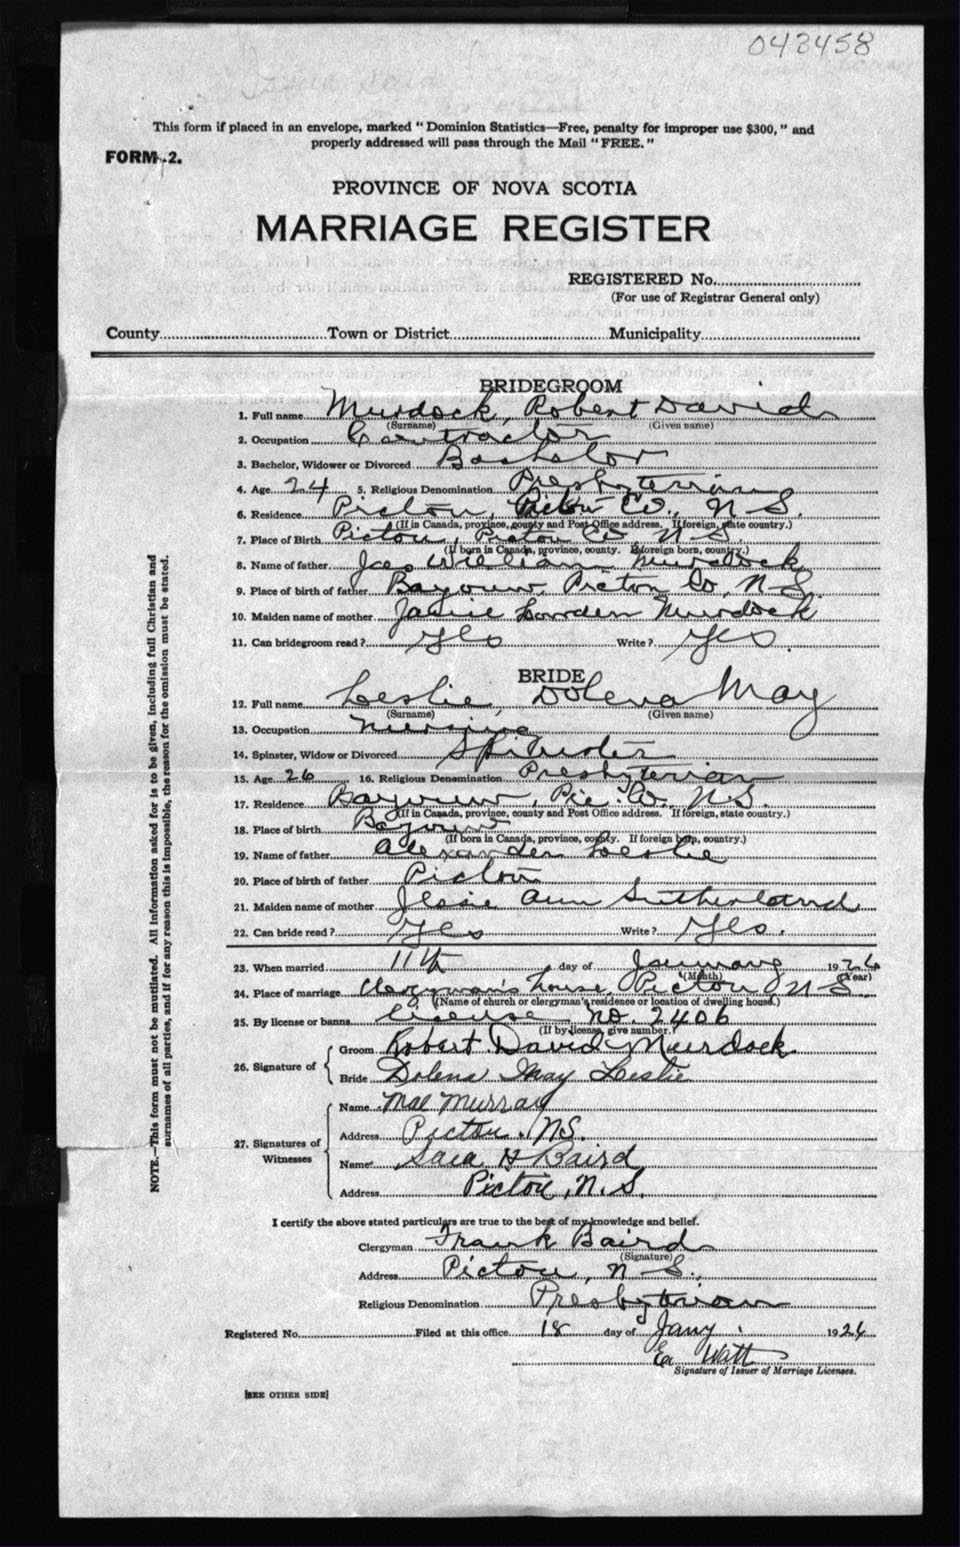 043458
This form if placed in an envelope, marked "Dominion Statistics—Free, penalty for improper use $300," and
properly addressed will pass through the Mail "FREE."
FORM 2.
PROVINCE OF NOVA SCOTIA
MARRIAGE REGISTER
REGISTERED No.
(For use of Registrar General only)
County Town or District Municipality
BRIDEGROOM
1. Full name Murdock, Robert David
(Surname) (Given name)
2. Occupation Contractor
3. Bachelor, Widower or Divorced Bachelor
4. Age 24 5. Religious Denomination Presbyterian
6. Residence Pictou, Pictou Co., N.S.
(If in Canada, province, county and Post Office address. If foreign, state country.)
7. Place of Birth Pictou, Pictou Co N.S.
(If born in Canada, province, county. If foreign born, country.)
8. Name of father Jas William Murdock
9. Place of birth of father Bayview, Pictou Co, N.S.
10. Maiden name of mother Murdock
11. Can bridegroom read? Yes Write? Yes.
BRIDE
12. Full name Leslie, Dolena May
(Surname) (Given name)
13. Occupation Nursing
14. Spinster, Widow or Divorced Spinster
15. Age 26 16. Religious Denomination Presbyterian
17. Residence Bayview, Pic. Co., N.S.
(If in Canada, province, county and Post Office address. If foreign, state country.)
18. Place of birth Bayview
(If born in Canada, province, county. If foreign born, country.)
19. Name of father Alexander Leslie
20. Place of birth of father Pictou
21. Maiden name of mother Jessie Ann Sutherland
22. Can bride read? Yes Write? Yes.
23. When married 11th day of January 1926
(Month) (Year)
24. Place of marriage Clergyman's house, Pictou, N.S.
(Name of church or clergyman's residence or location of dwelling house.)
25. By license or banns License No. 2406
(If by license, give number.)
26. Signature of Groom Robert David Murdock
Bride Dolena May Leslie
27. Signatures of Witnesses
Name Mae Murray
Address Pictou, N.S.
Name Sara H Baird
Address Pictou, N.S.
I certify the above stated particulars are true to the best of my knowledge and belief.
Clergyman Frank Baird
(Signature)
Address Pictou, N.S.
Religious Denomination Presbyterian
Registered No. Filed at this office 18 day of Jany. 1926
Watt
Signature of Issuer of Marriage Licenses.
[SEE OTHER SIDE]
NOTE.—This form must not be mutilated. All information asked for is to be given, including full Christian and
surnames of all parties, and if for any reason this is impossible, the reason for the omission must be stated.